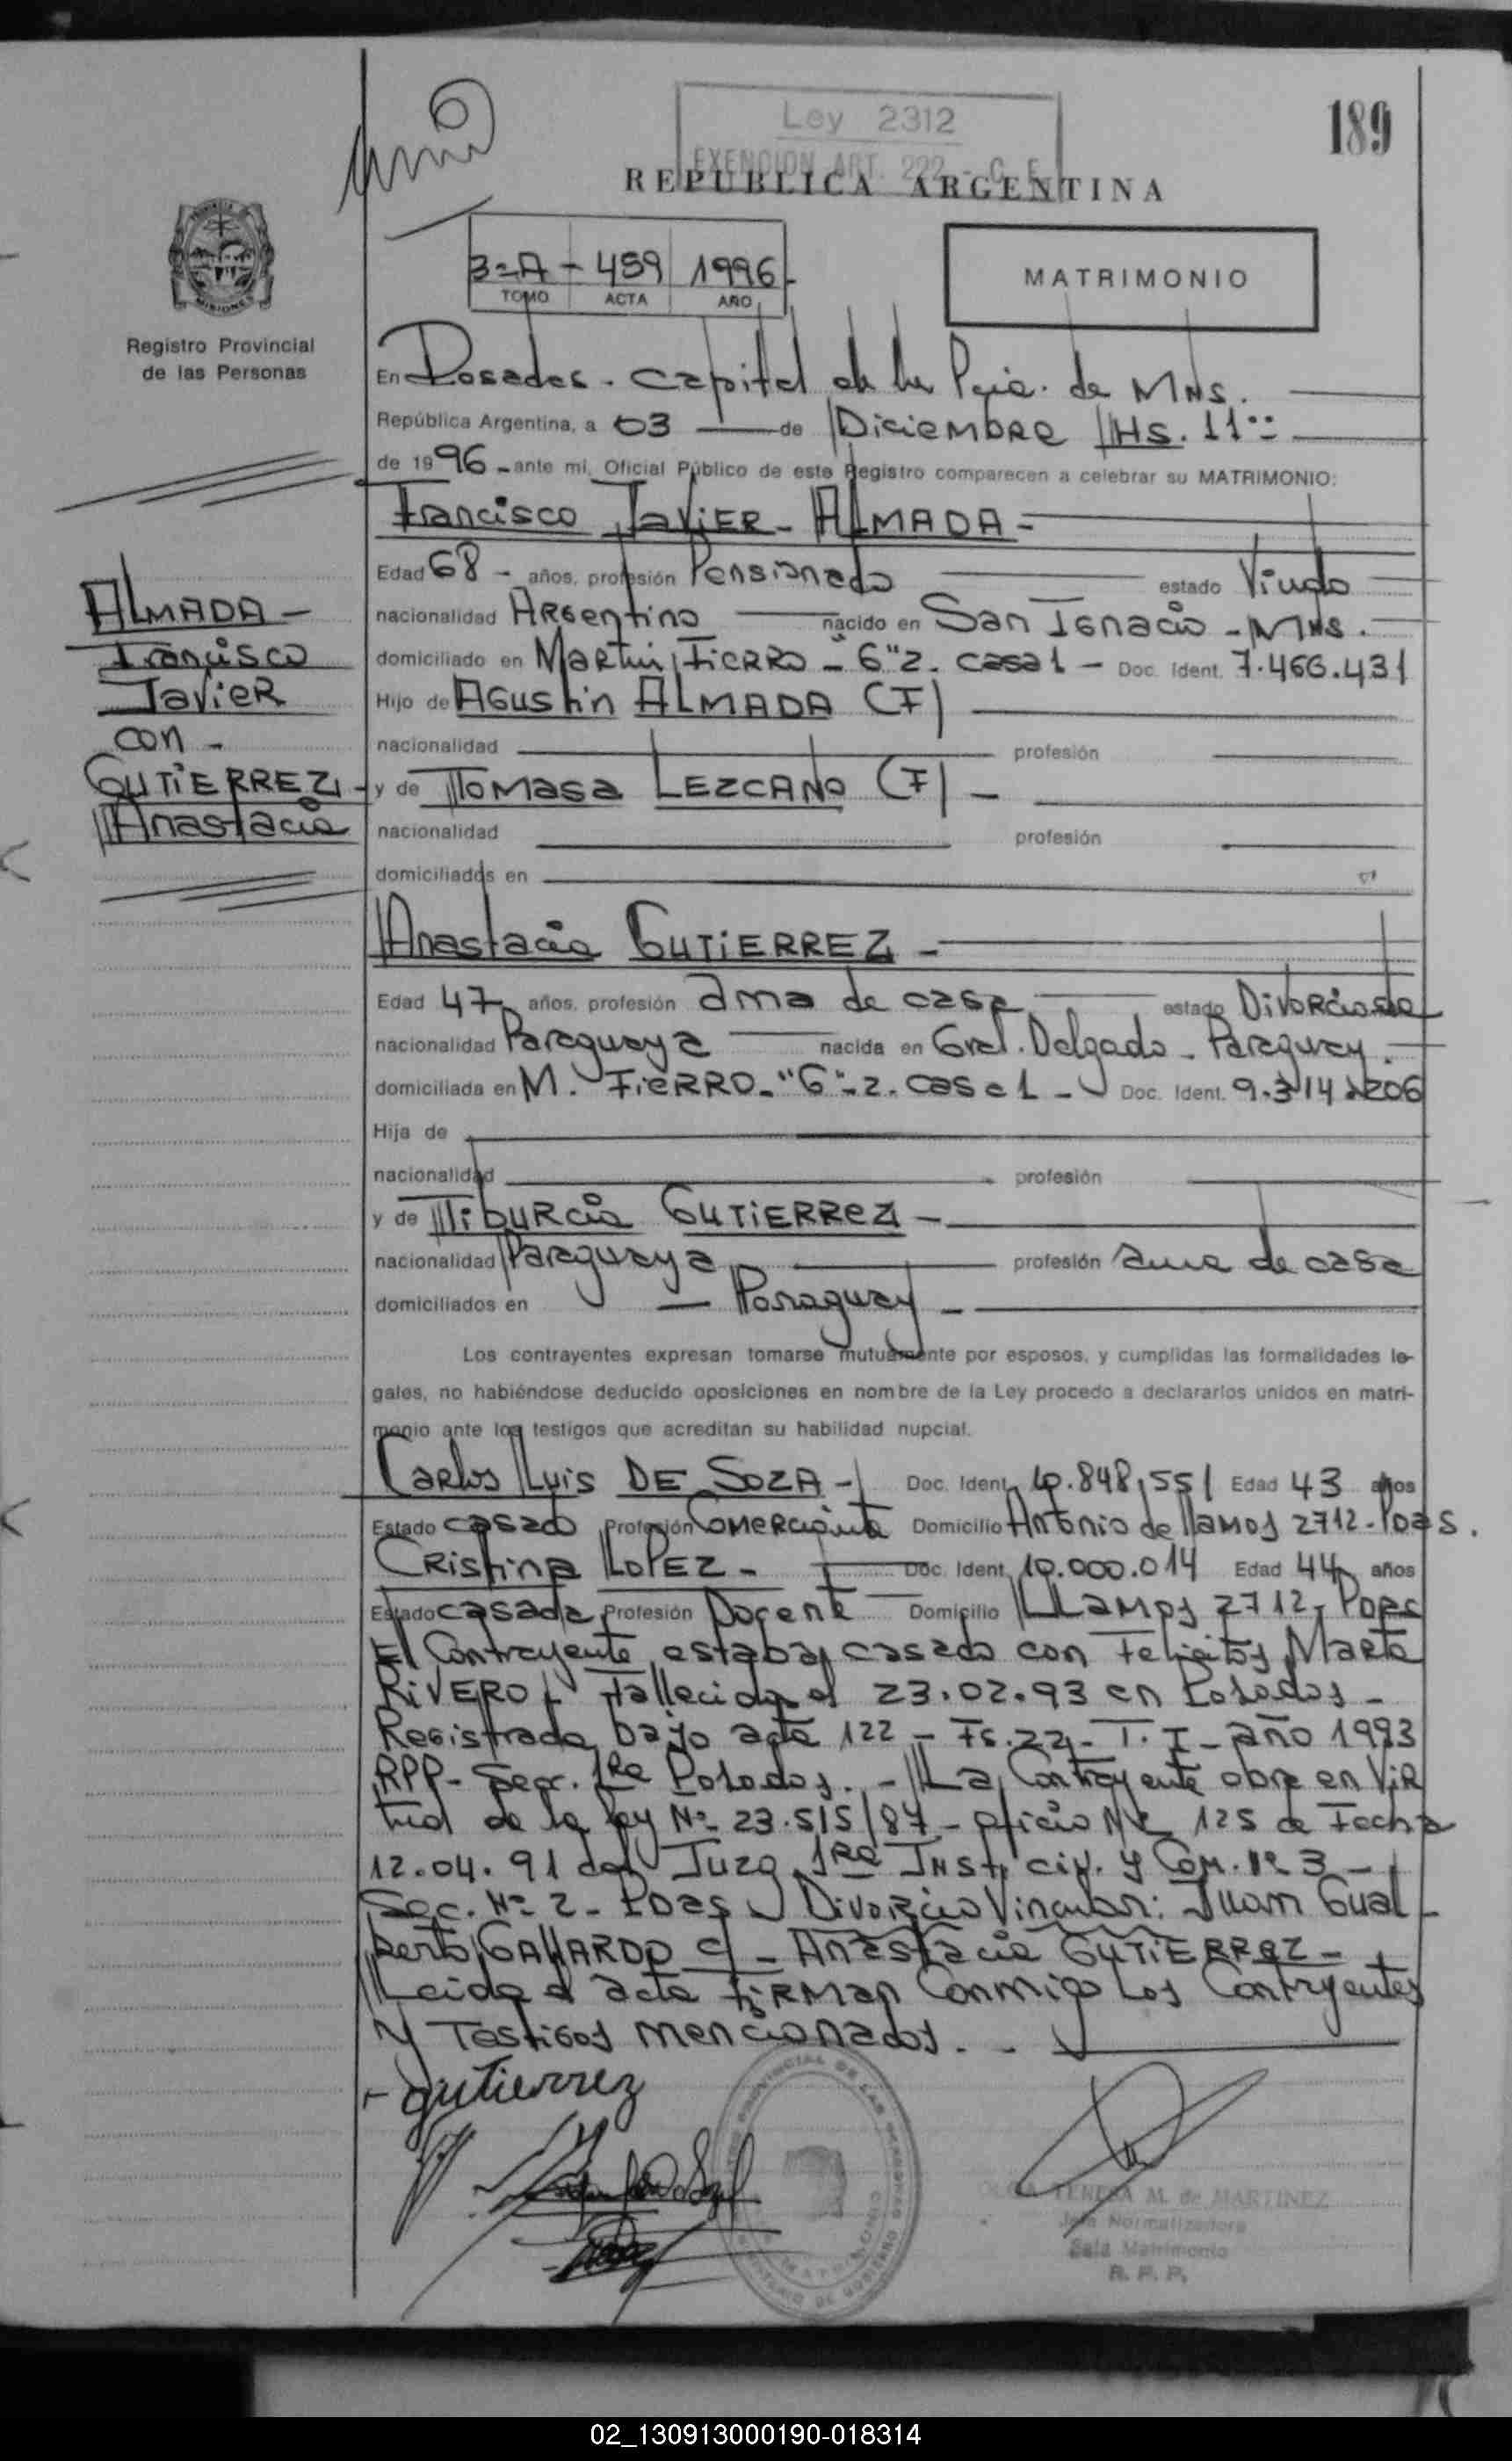 Ley 2312
EXENCION ART. 222 - C. F.
189
REPUBLICA ARGENTINA
3=A - 459 1996-
TOMO ACTA AÑO
MATRIMONIO
PROVINCIA
MISIONES
Registro Provincial
de las Personas
En Posadas - Capital de la Pcia. de MNS.
República Argentina, a 03 de Diciembre Hs. 11
de 1996 - ante mi, Oficial Público de este Registro comparecen a celebrar su MATRIMONIO:
Francisco Javier - ALMADA -
Edad 68 - años, profesión Pensionado estado Viudo
nacionalidad Argentino nacido en San Ignacio - MNS.
domiciliado en Martin Fierro - "6" 2. casa 1 - Doc. Ident. 7.466.431
Hijo de Agustin ALMADA (F)
nacionalidad profesión
y de Tomasa LEZCANO (F) -
nacionalidad profesión
domiciliados en
ALMADA -
Francisco
Javier
con -
GUTIERREZ -
Anastacia
Anastacia GUTIERREZ -
Edad 47 años, profesión ama de casa estado Divorciada
nacionalidad Paraguaya nacida en Gral. Delgado - Paraguay.
domiciliada en M. FIERRO - "6" - 2. casa 1 - Doc. Ident. 9.314.206
Hija de
nacionalidad profesión
y de Tiburcia GUTIERREZ -
nacionalidad Paraguaya profesión ama de casa
domiciliados en - Paraguay -
Los contrayentes expresan tomarse mutuamente por esposos, y cumplidas las formalidades le-
gales, no habiéndose deducido oposiciones en nombre de la Ley procedo a declararlos unidos en matri-
monio ante los testigos que acreditan su habilidad nupcial.
Carlos Luis DE SOZA - Doc. Ident. 10.848.551 Edad 43 años
Estado casado Profesión Comerciante Domicilio Antonio de llamos 2712 - Poas.
Cristina LOPEZ - Doc. Ident. 10.000.014 Edad 44 años
Estado casada Profesión Docente Domicilio LLamos 2712, Poas
El Contrayente estaba casado con Felicitas Marta
RIVERO - Fallecida el 23.02.93 en Posadas -
Registrada bajo acta 122 - Fs. 22 - T. I - año 1993
RPP - Secr. 1Ra Posadas. - La Contrayente obra en Vir
tud de la ley Nº 23.515/87 - oficio Nº 125 de Fecha
12.04.91 del Juzg. 1Ra Inst. civ. y Com. Nº 3 -
Sec. Nº 2 - Poas Divorcio Vincular: Juan Gual -
berto GALLARDO c/ - Anastacia GUTIERREZ -
Leida el acta firman Conmigo Los Contrayentes
y Testigos mencionados. -
gutierrez
OLGA TERESA M. de MARTINEZ
Jefa Normalizadora
Sala Matrimonio
R. P. P.
02_130913000190-018314